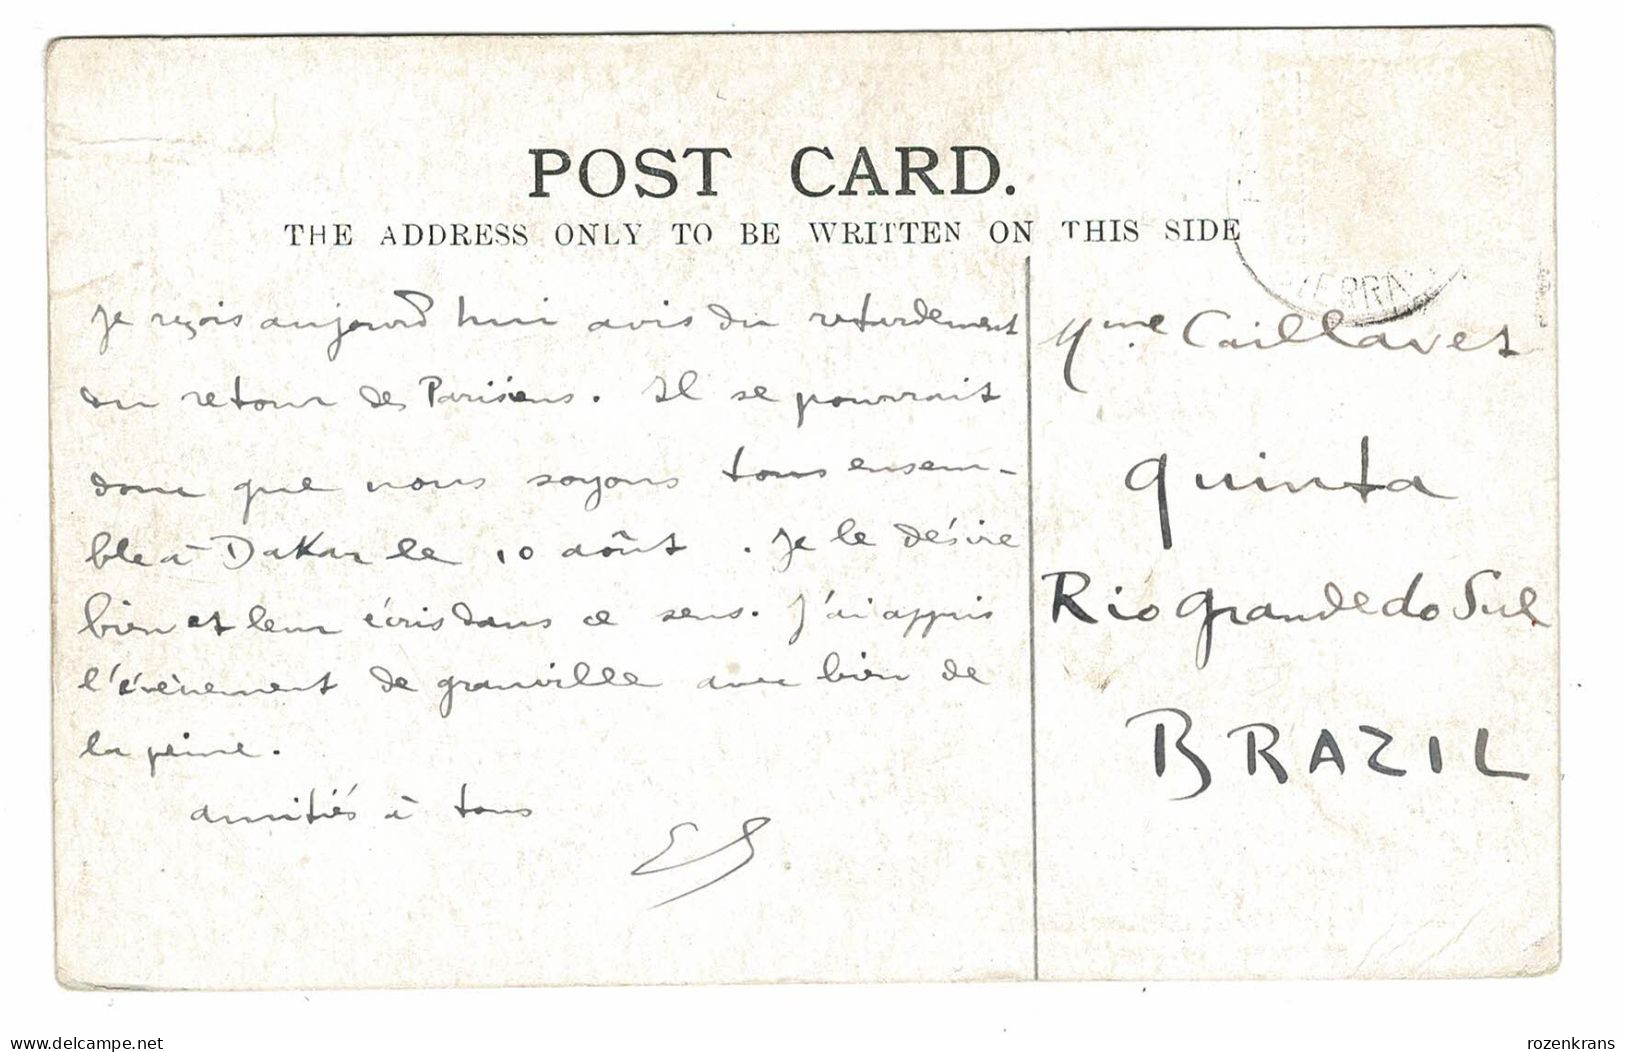 POST CARD.
THE ADDRESS ONLY TO BE WRITTEN ON THIS SIDE
Je reçois aujourd'hui avis du retardement
du retour des Parisiens. Il se pourrait
donc que nous soyons tous ensem-
ble à Dakar le 10 août. Je le désire
bien et leur écris dans ce sens. J'ai appris
l'évènement de Granville avec bien de
la peine.
amitiés à tous
Mme Caillavet
Quinta
Rio Grande do Sul
BRAZIL
delcampe.net
rozenkrans